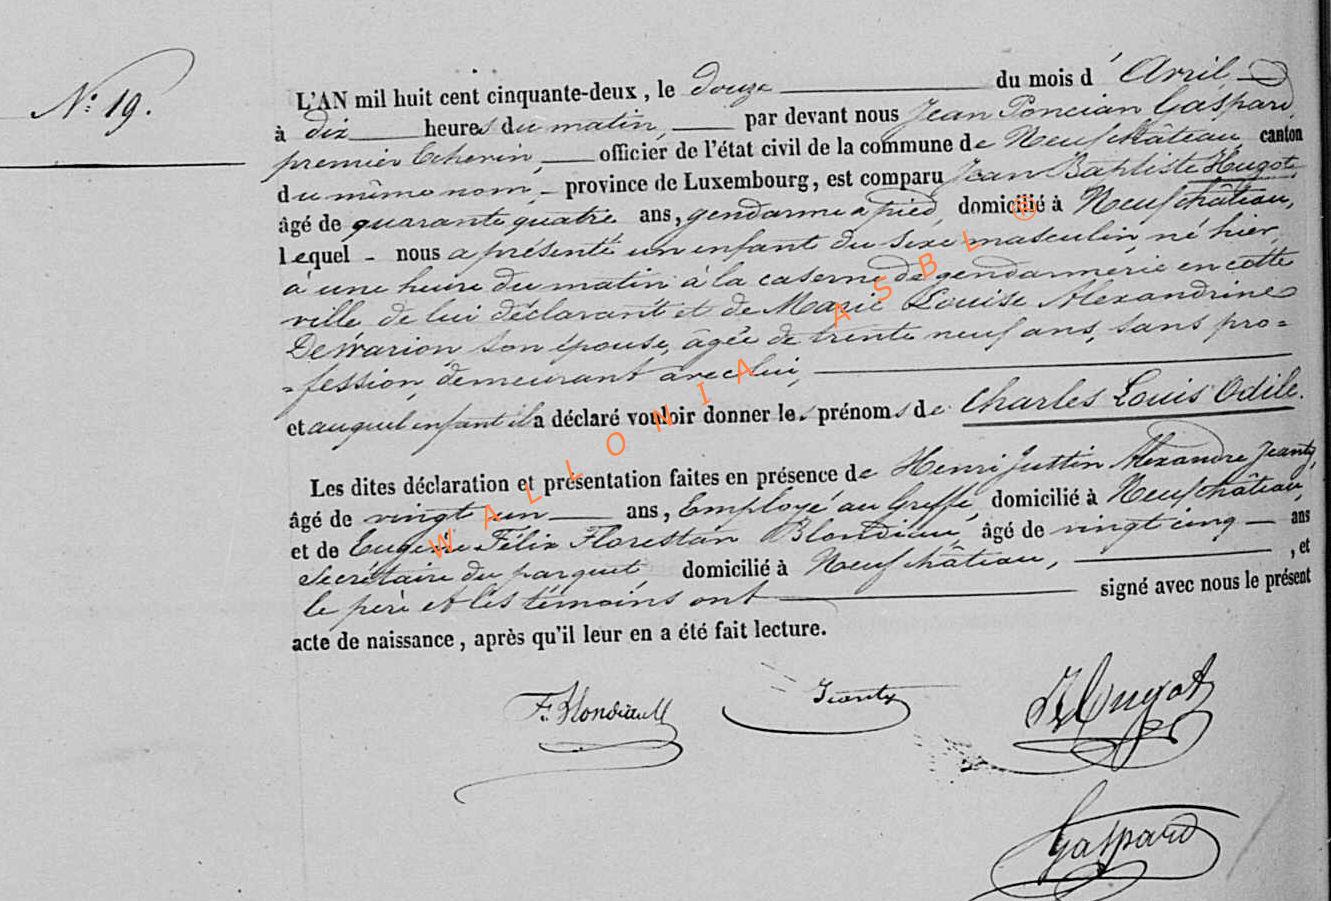 N° 19.
L'AN mil huit cent cinquante-deux, le douze du mois d'Avril
à dix heures du matin, par devant nous Jean Poncian Gaspard,
premier Echevin, officier de l'état civil de la commune de Neufchâteau canton
du même nom, province de Luxembourg, est comparu Jean Baptiste Hugot
âgé de quarante quatre ans, gendarme a pied, domicilié à Neufchâteau,
lequel nous a présenté un enfant du sexe masculin, né hier,
à une heure du matin à la caserne de gendarmerie en cette
ville de lui déclarant et de Marie Louise Alexandrine
son épouse, âgée de trente neuf ans, sans pro=
=fession, demeurant avec lui,
et auquel enfant il a déclaré vouloir donner les prénoms de Charles Louis Odile.
Les dites déclaration et présentation faites en présence de Henri Justin Alexandre Jeanty,
âgé de vingt un ans, Employé au Greffe, domicilié à Neufchâteau,
et de Eugène Félix Florestan âgé de vingt cinq ans
Secrétaire du parquet, domicilié à Neufchâteau, , et
le père et les témoins ont signé avec nous le présent
acte de naissance, après qu'il leur en a été fait lecture.
Jeanty
Hugot
Gaspard
WALLONIA ASBL ®